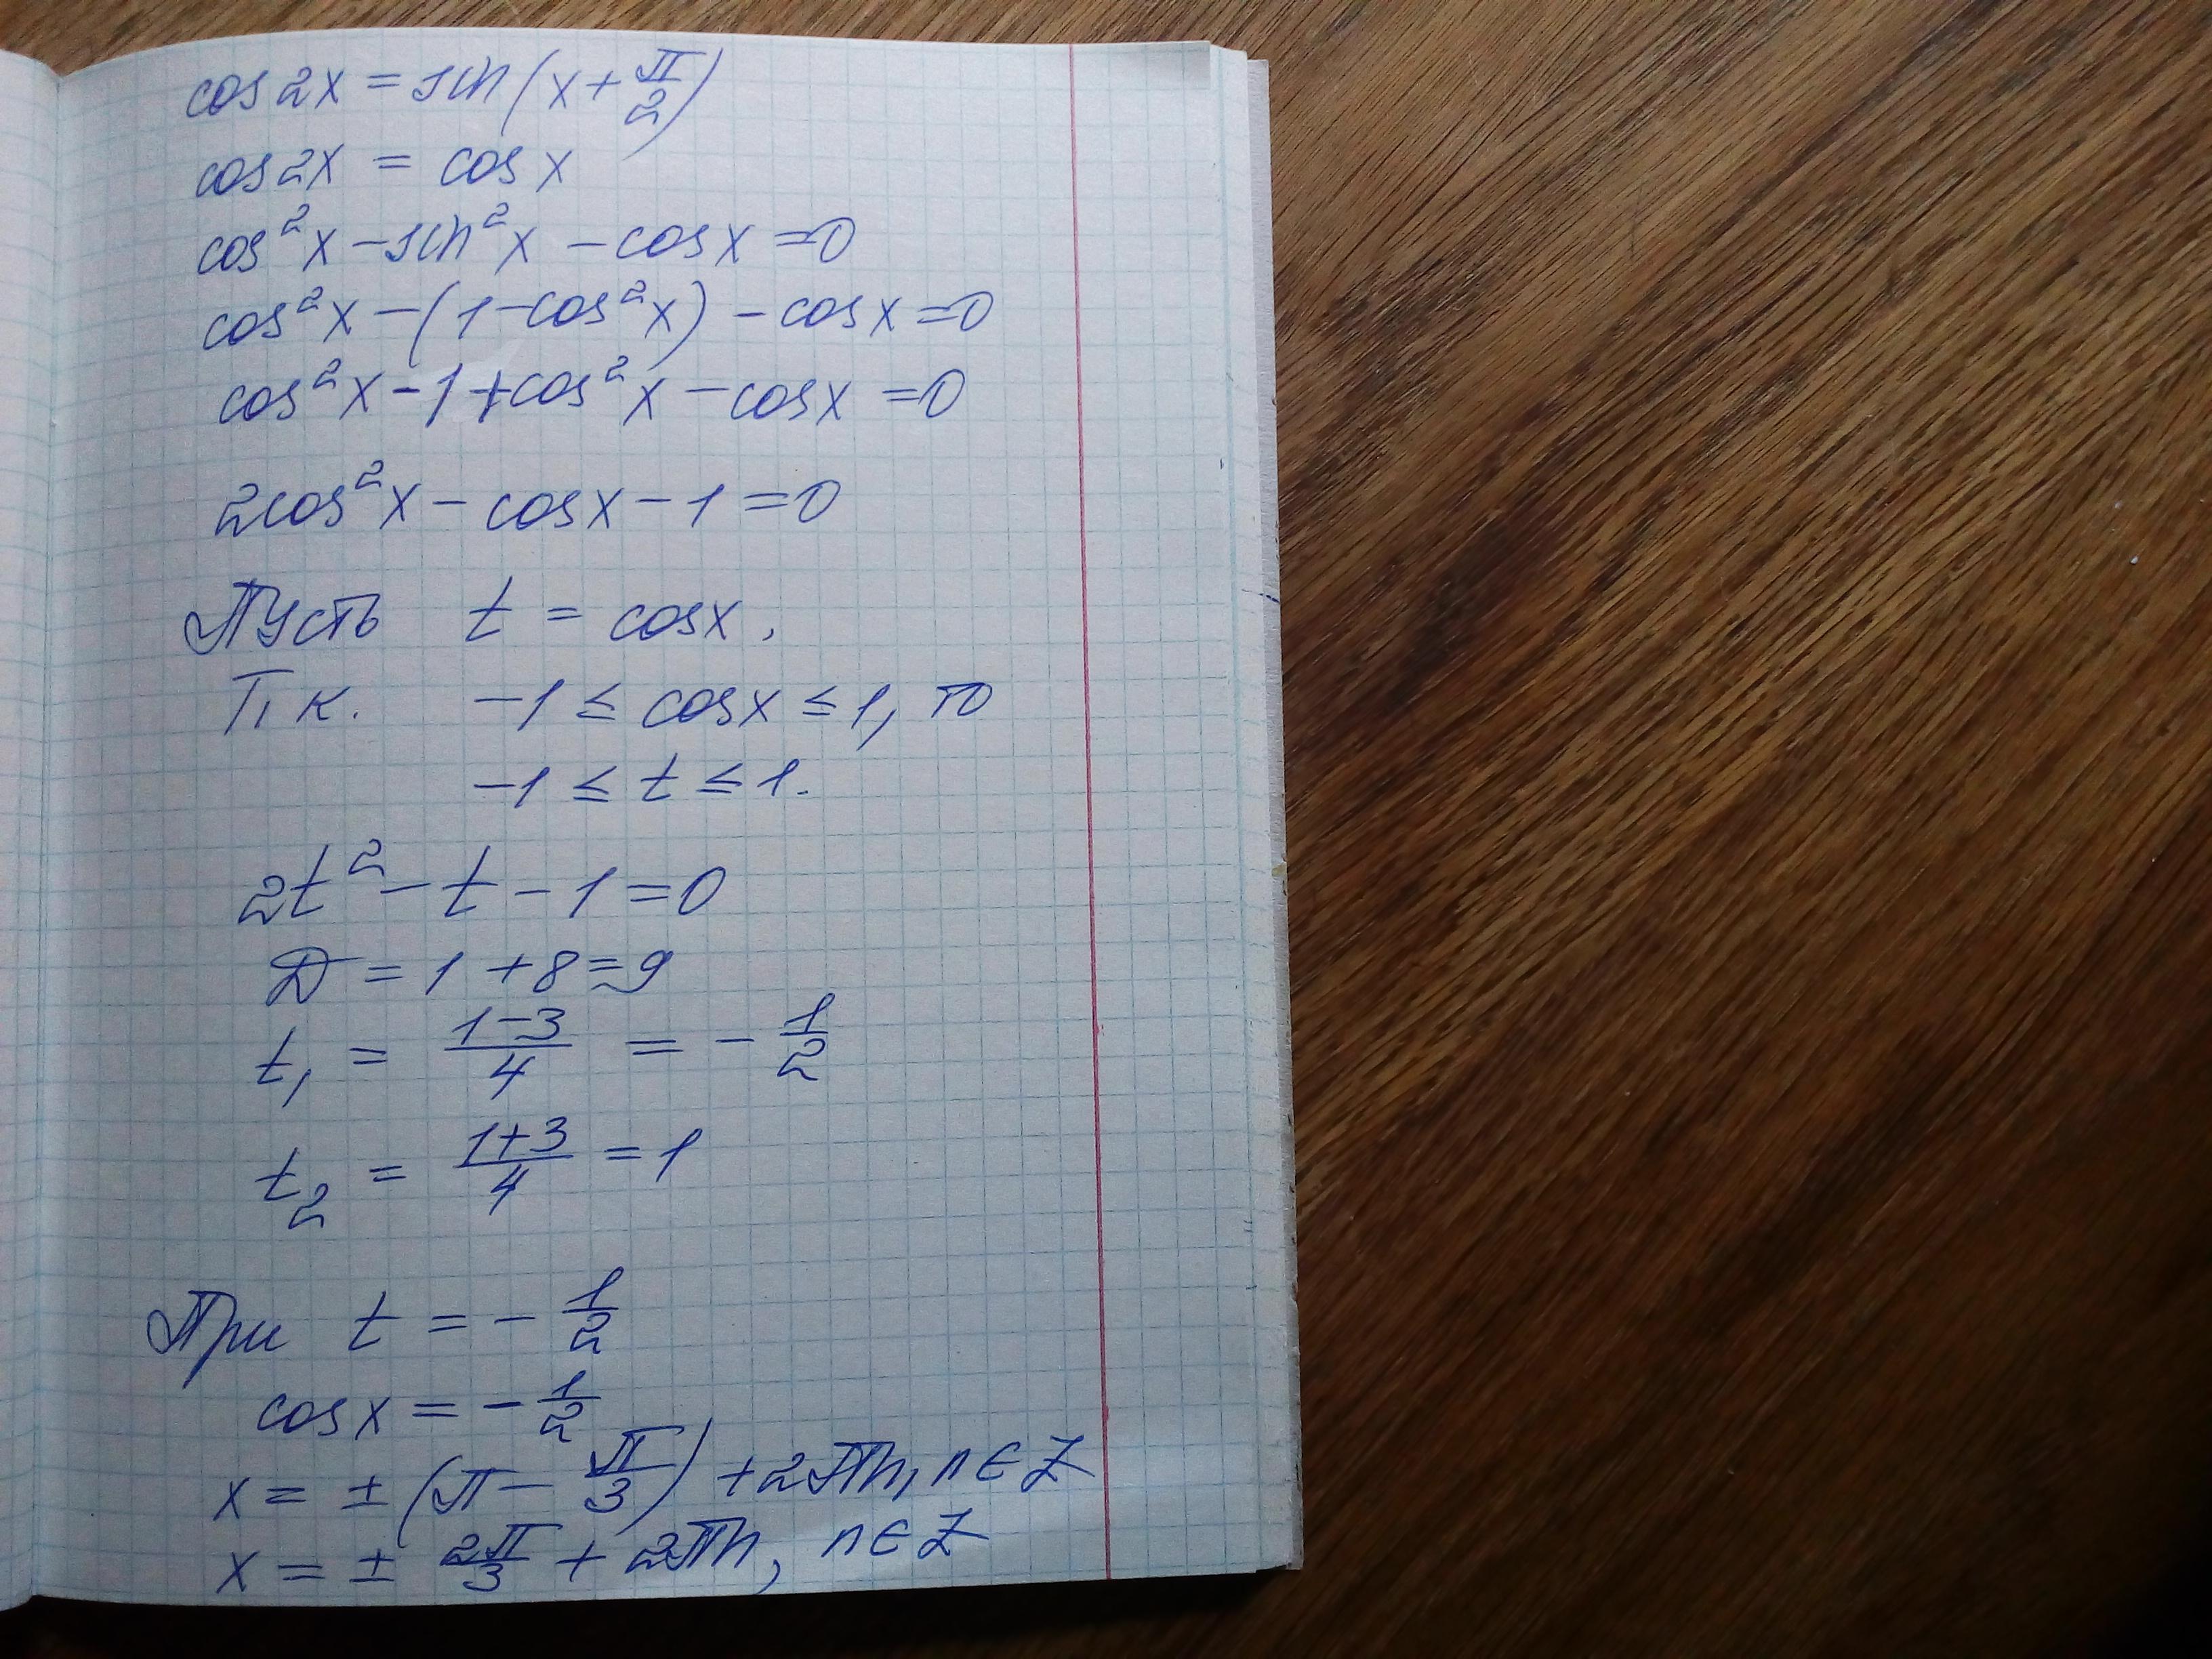 cos2x = sin(x + π/2)
cos2x = cosx
cos²x - sin²x - cosx = 0
cos²x - (1 - cos²x) - cosx = 0
cos²x - 1 + cos²x - cosx = 0
2cos²x - cosx - 1 = 0
Пусть t = cosx.
Т.к. -1 ≤ cosx ≤ 1, то
-1 ≤ t ≤ 1.
2t² - t - 1 = 0
Д = 1 + 8 = 9
t₁ = (1-3)/4 = - 1/2
t₂ = (1+3)/4 = 1
При t = - 1/2
cosx = - 1/2
x = ± (π - π/3) + 2πn, n∈Z
x = ± 2π/3 + 2πn, n∈Z